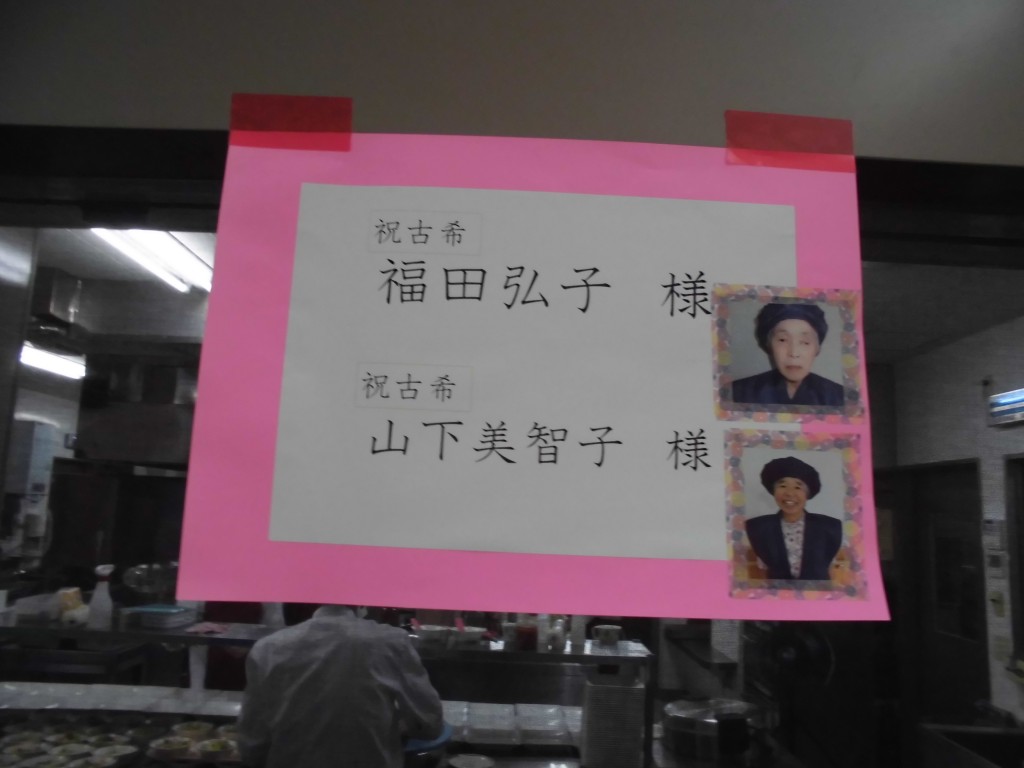 祝古希
福田弘子 様
祝古希
山下美智子 様